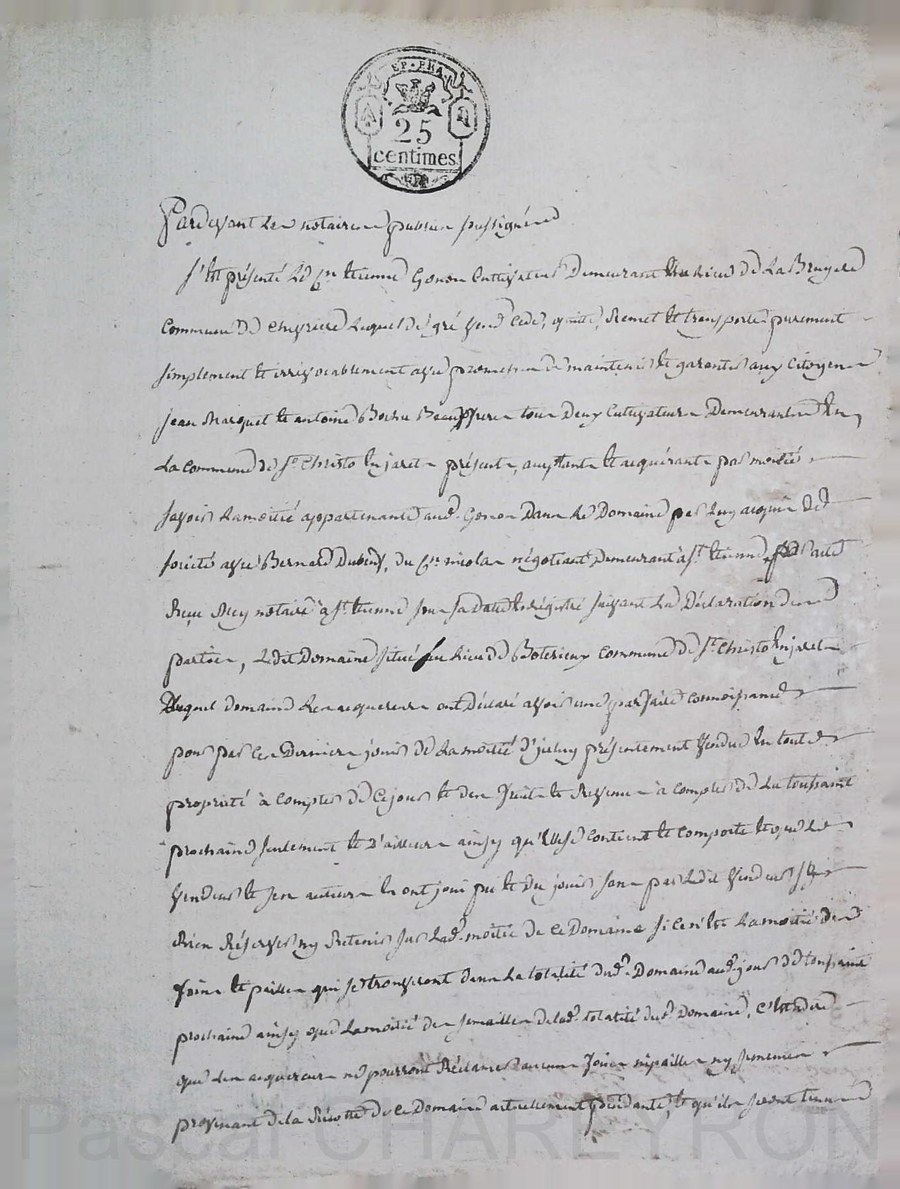 REP. FRA
25
centimes
Pardevant les notaires publics soussignés
s'est présenté le Cn Etienne Gonon Cultivateur Demeurant au lieu de La Bruyere
Commune de Chevrieres Lequel de gré vend Cede, quitte, Remet et transporte purement
simplement et irrévocablement avec promesse de maintenir et garantir aux Citoyens
jean Marquet et antoine Beaufrere tous Deux Cultivateurs Demeurants en
La Commune de St Christo En jaret présents, acceptants et acquérants par moitié
savoir La moitié appartenante aud. Gonon Dans Le Domaine par Luy acquis de
société avec Bernard Dubouy, du Cn nicolas négotiant Demeurant à St Etienne par acte
Reçu notaire à St Etienne sous sa Date Enrégistré suivant La Déclaration des
parties, Ledit Domaine situé au Lieu de Commune de St Christo En jaret
Duquel domaine Les acquereurs ont Déclaré avoir une parfaite Connoissance
pour par Ces Derniers jouir de La moitié D'iceluy présentement Vendue En toute
propriété à Compter de Ce jour et des fruits et Revenus à Compter de La toussaint
prochaine seulement et D'ailleurs ainsy qu'Elle se Contient et Comporte et que Le
Vendeur et ses auteurs En ont joui pu et du jouir sans par Ledit Vendeur s'y
Rien Réserver ny Retenir sur Lad. moitié de Ce Domaine si Ce n'Est La moitié des
foins et pailles qui se trouveront dans La totalité dud. Domaine aud. jour de toussaint
prochaine ainsy que La moitié des semailles de lad. totalité dud. Domaine, C'Est à dire
que Les acquereurs ne pourront Réclamer aucuns foins ni pailles ny semences
provenant de la Récolte de Ce Domaine actuellement pendante, et qu'ils seront tenus
Pascal CHARLEYRON